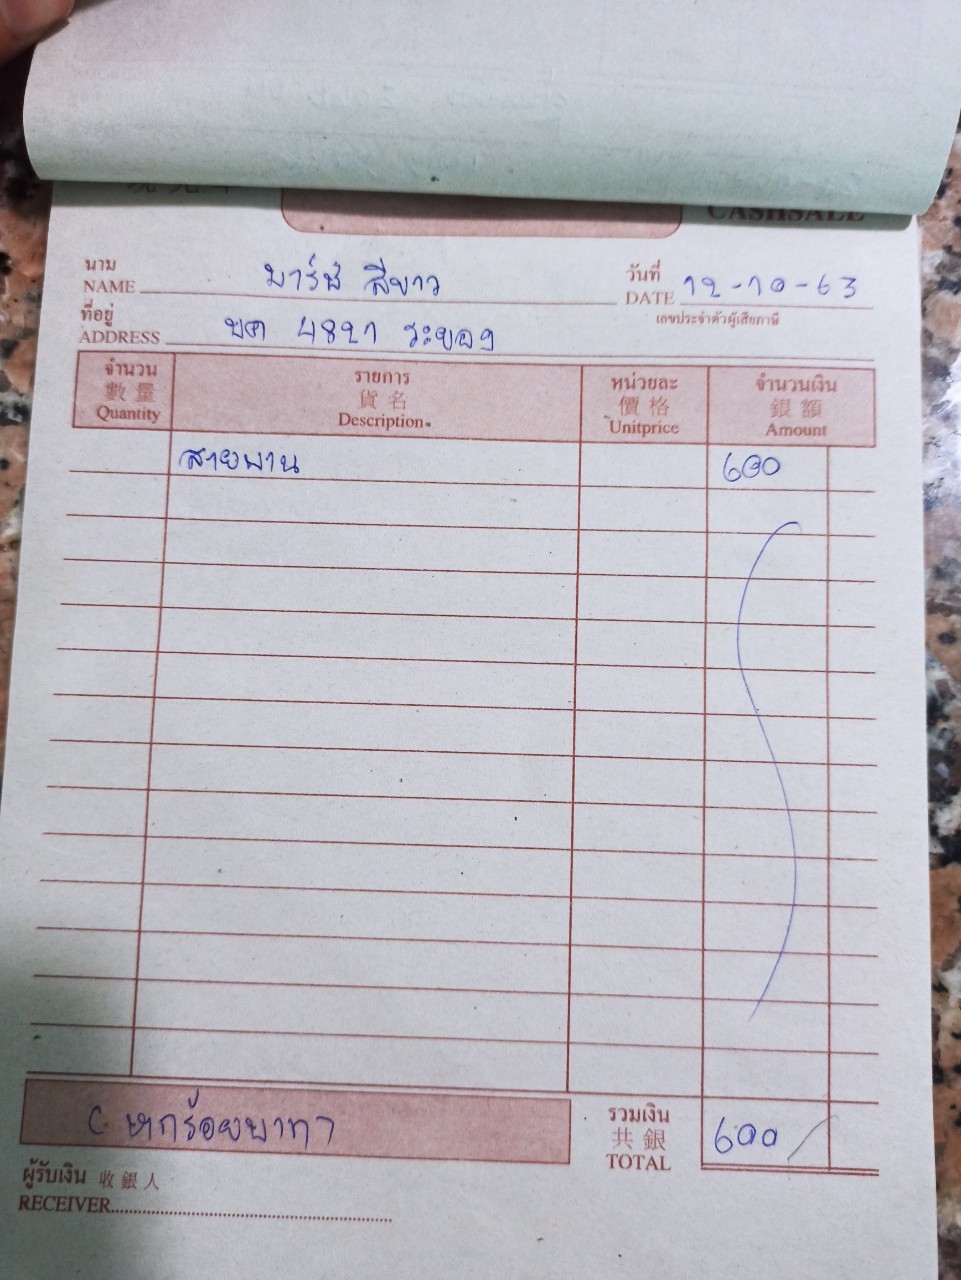 CASHSALE
นาม
NAME มาร์ช สีขาว
วันที่
DATE 12-10-63
ที่อยู่
ADDRESS บค 4821 ระยอง
เลขประจำตัวผู้เสียภาษี
จำนวน 數量 Quantity
รายการ 貨名 Description
หน่วยละ 價格 Unitprice
จำนวนเงิน 銀額 Amount
สายพาน 600
หกร้อยบาท
รวมเงิน 共銀 TOTAL 600
ผู้รับเงิน 收銀人
RECEIVER